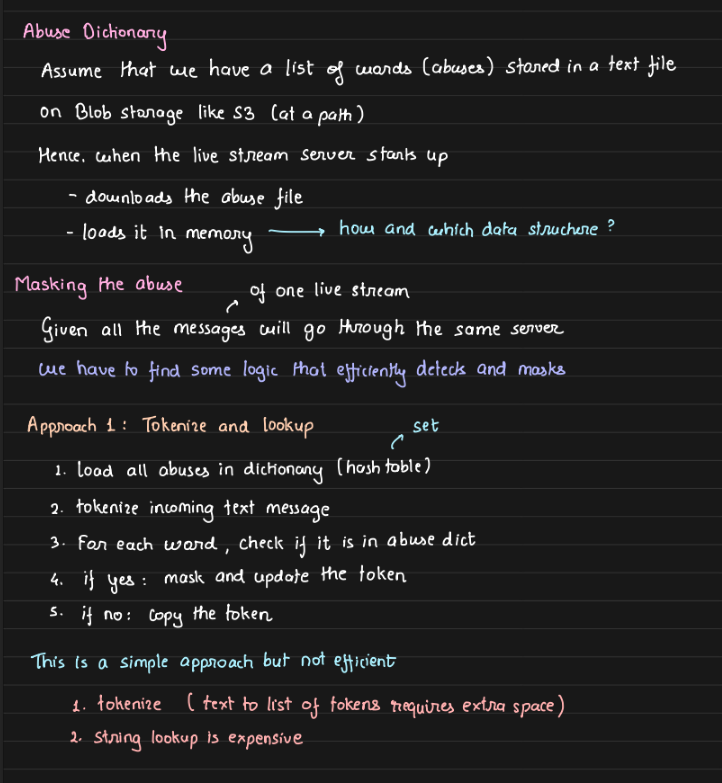 Abuse Dictionary
Assume that we have a list of words (abuses) stored in a text file
on Blob storage like S3 (at a path)
Hence, when the live stream server starts up
- downloads the abuse file
- loads it in memory → how and which data structure ?
Masking the abuse
of one live stream
Given all the messages will go through the same server
we have to find some logic that efficiently detects and masks
Approach 1: Tokenize and lookup
set
1. load all abuses in dictionary (hash table)
2. tokenize incoming text message
3. For each word, check if it is in abuse dict
4. if yes: mask and update the token
5. if no: copy the token
This is a simple approach but not efficient
1. tokenize ( text to list of tokens requires extra space)
2. string lookup is expensive